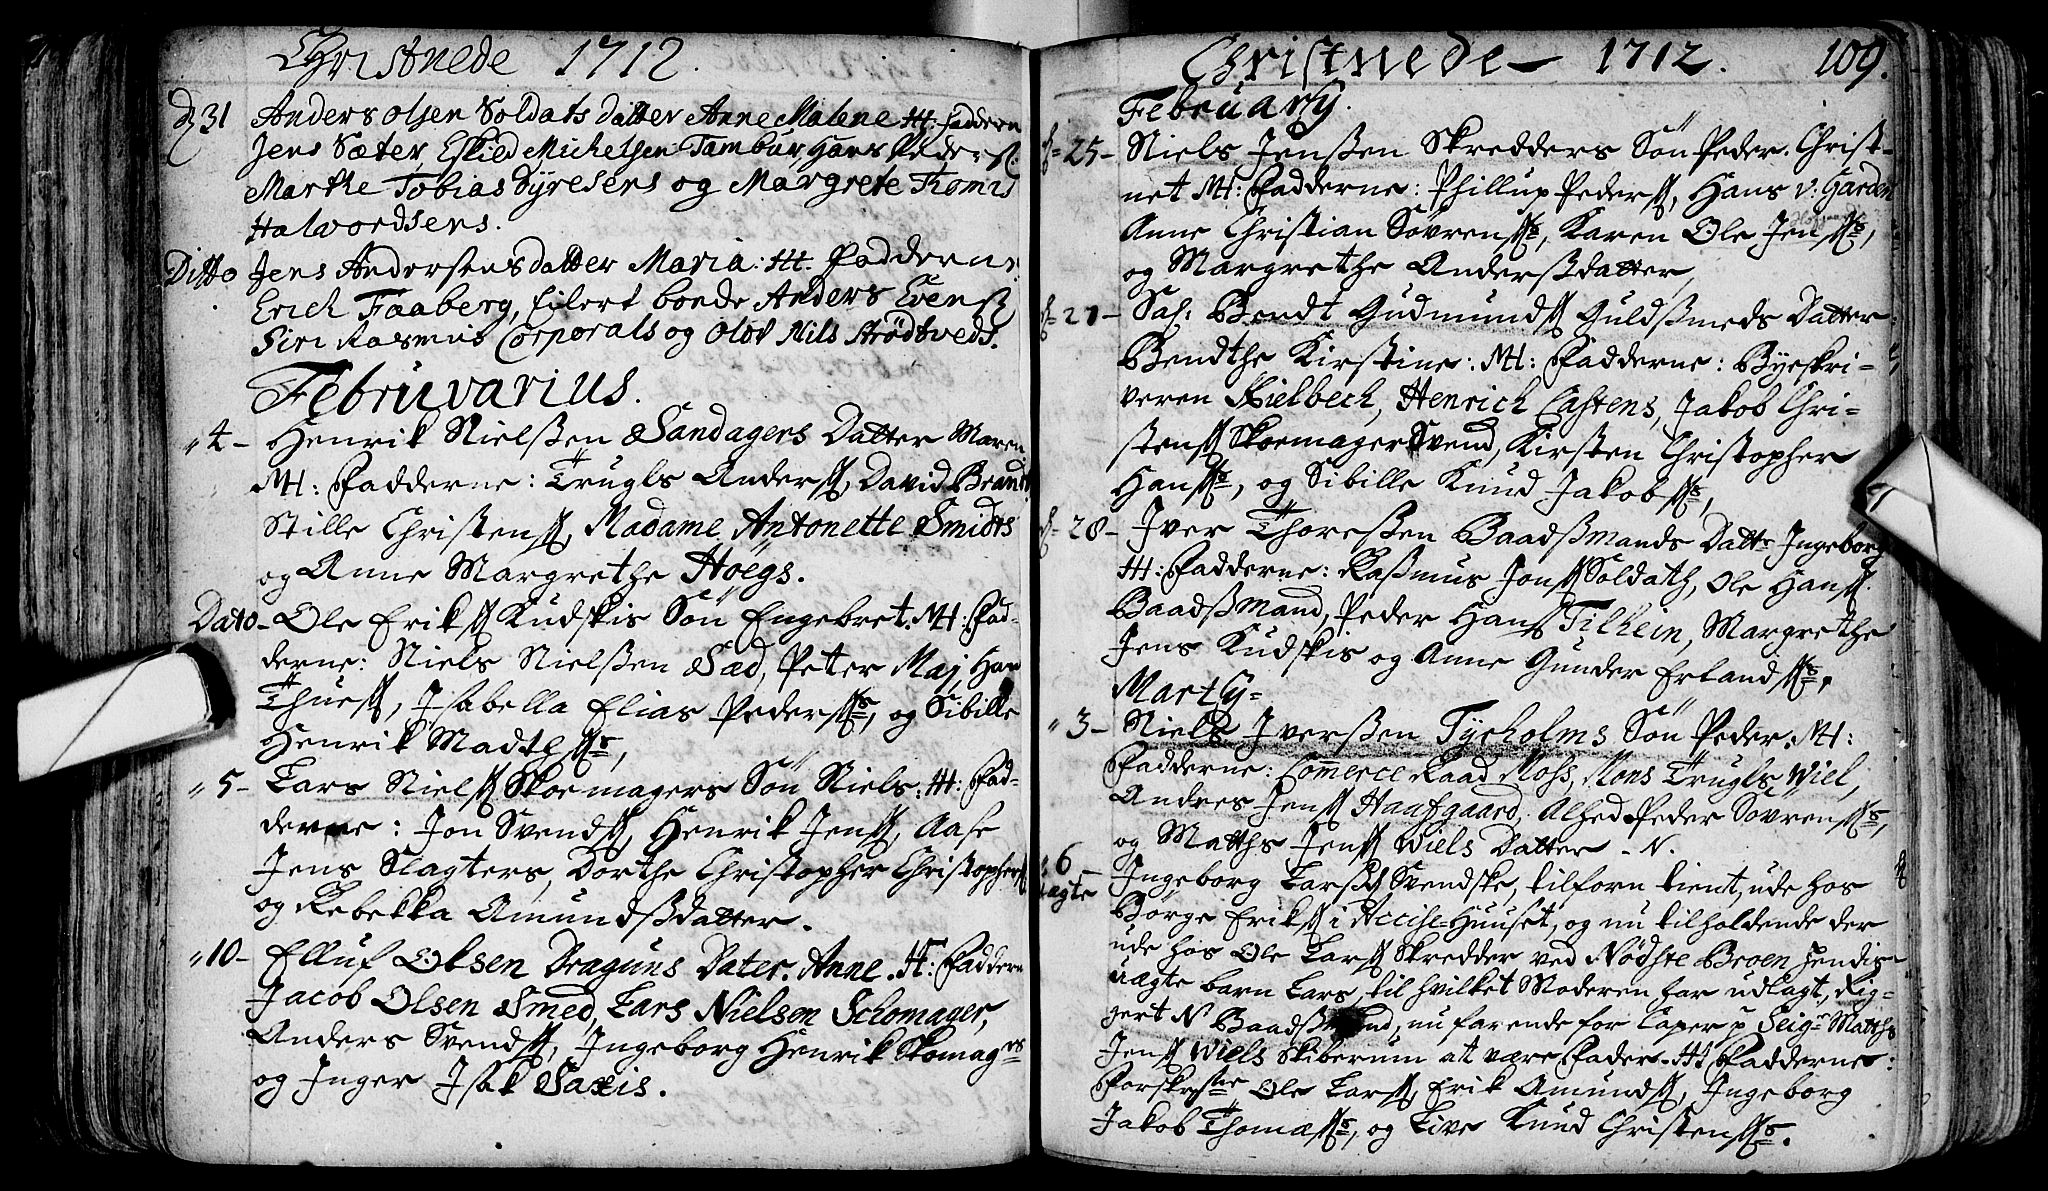 Christnede 1712.
d 31 Anders Olsen Soldats datter Anne Malene H: faddern
Jens Sæter, Eskild Michelsen Tambur Hans Peders:
Marthe Tobias Syresens og Margrete Thomis
Halvordsens.
Ditto Jens Andersens datter Maria: H. Fadderne
Erich Faaberg, Eilert bonde Anders Evens
Siri Rasmus Corporals og Olov Nils Strødtveds.
Februvarius.
" 4 - Henrik Nielßen Sandagers Datter Maren
MH: Fadderne: Trugls Anderss, David Brandt
Stille Christenss, Madame Antonette Smidts
og Anne Margrethe Höegs.
Dato - Ole Erikss Kudskis Sön Engebret. MH: Fad-
derne: Niels Nielßen Sæd, Peter Maj, Han
Thuess, Isabella Elias Pederss, og Sibille
Henrik Madthss,
" 5 - Lars Nielss Skoemagers Sön Niels: H: Fad-
derne: Jon Svendss, Henrik Jenss, Aase
Jens Slagters, Dorthe Christopher Christophers
og Rebekka Amundßdatter.
" 10 - Elluf Olsen Draguns Dater. Anne. H: Faddern
Jacob Olsen Smed, Lars Nielsen Schomager,
Anders Svendss, Ingeborg Henrik Skomagrs
og Inger Isak Saxis.
Christnede - 1712. 109.
February.
d= 25 - Niels Jenßen Skredders Sön Peder. Christ-
net MH: Fadderne: Phillup Pederss, Hans v: Garden
Anne Christian Sövrenss, Karen Ole Jenss,
og Margrethe Anderßdatter,
d= 27 - Sal: Berdt Gudmundss Guldßmeds Datter
Bendthe Kirstine: MH: Fadderne: Byeskri-
veren Kielbech, Henrich Castens, Jakob Chri-
stenss Skoemager Svend, Kirsten Christopher
Hanss, og Sibille Knud Jakobss,
d= 28 - Iver Thoreßen Baadßmands Dattr Ingeborg
H: Fadderne: Raßmus Jonss Soldath, Ole Hanss
Baadßmand, Peder Hanss Tilhein, Margrethe
Jens Kudskis og Anne Gunder Erlandss,
Marty=
" 3 - Niels Iverßen Tyeholms Sön Peder. MH:
Fadderne: Commerce Raad Moss, Mons Trugls Wiel,
Andres Jenss Haafgaard, Alhed Peder Sövrenss,
og Matths Jenss Wiels Datter - N.
" 6 - Ingeborg Larsd Svendske, tilforn tient, ude hos
uægte Börge Erikss i Accise=Huuset, og nu tilholdende der
ude hos Ole Larss Skredder ved Nödste Broen hendis
uægte barn Lars, til hvilket Moderen har udlagt, Rig-
gert N Baadßmand, nu farende for Caper p Seigr Matths
Jenss Wiels Skiberum at være Fader. H: Fadderne:
Ole Larss, Erik Amundss, Ingeborg
Jakob Thomæss, og Live Knud Christenss.